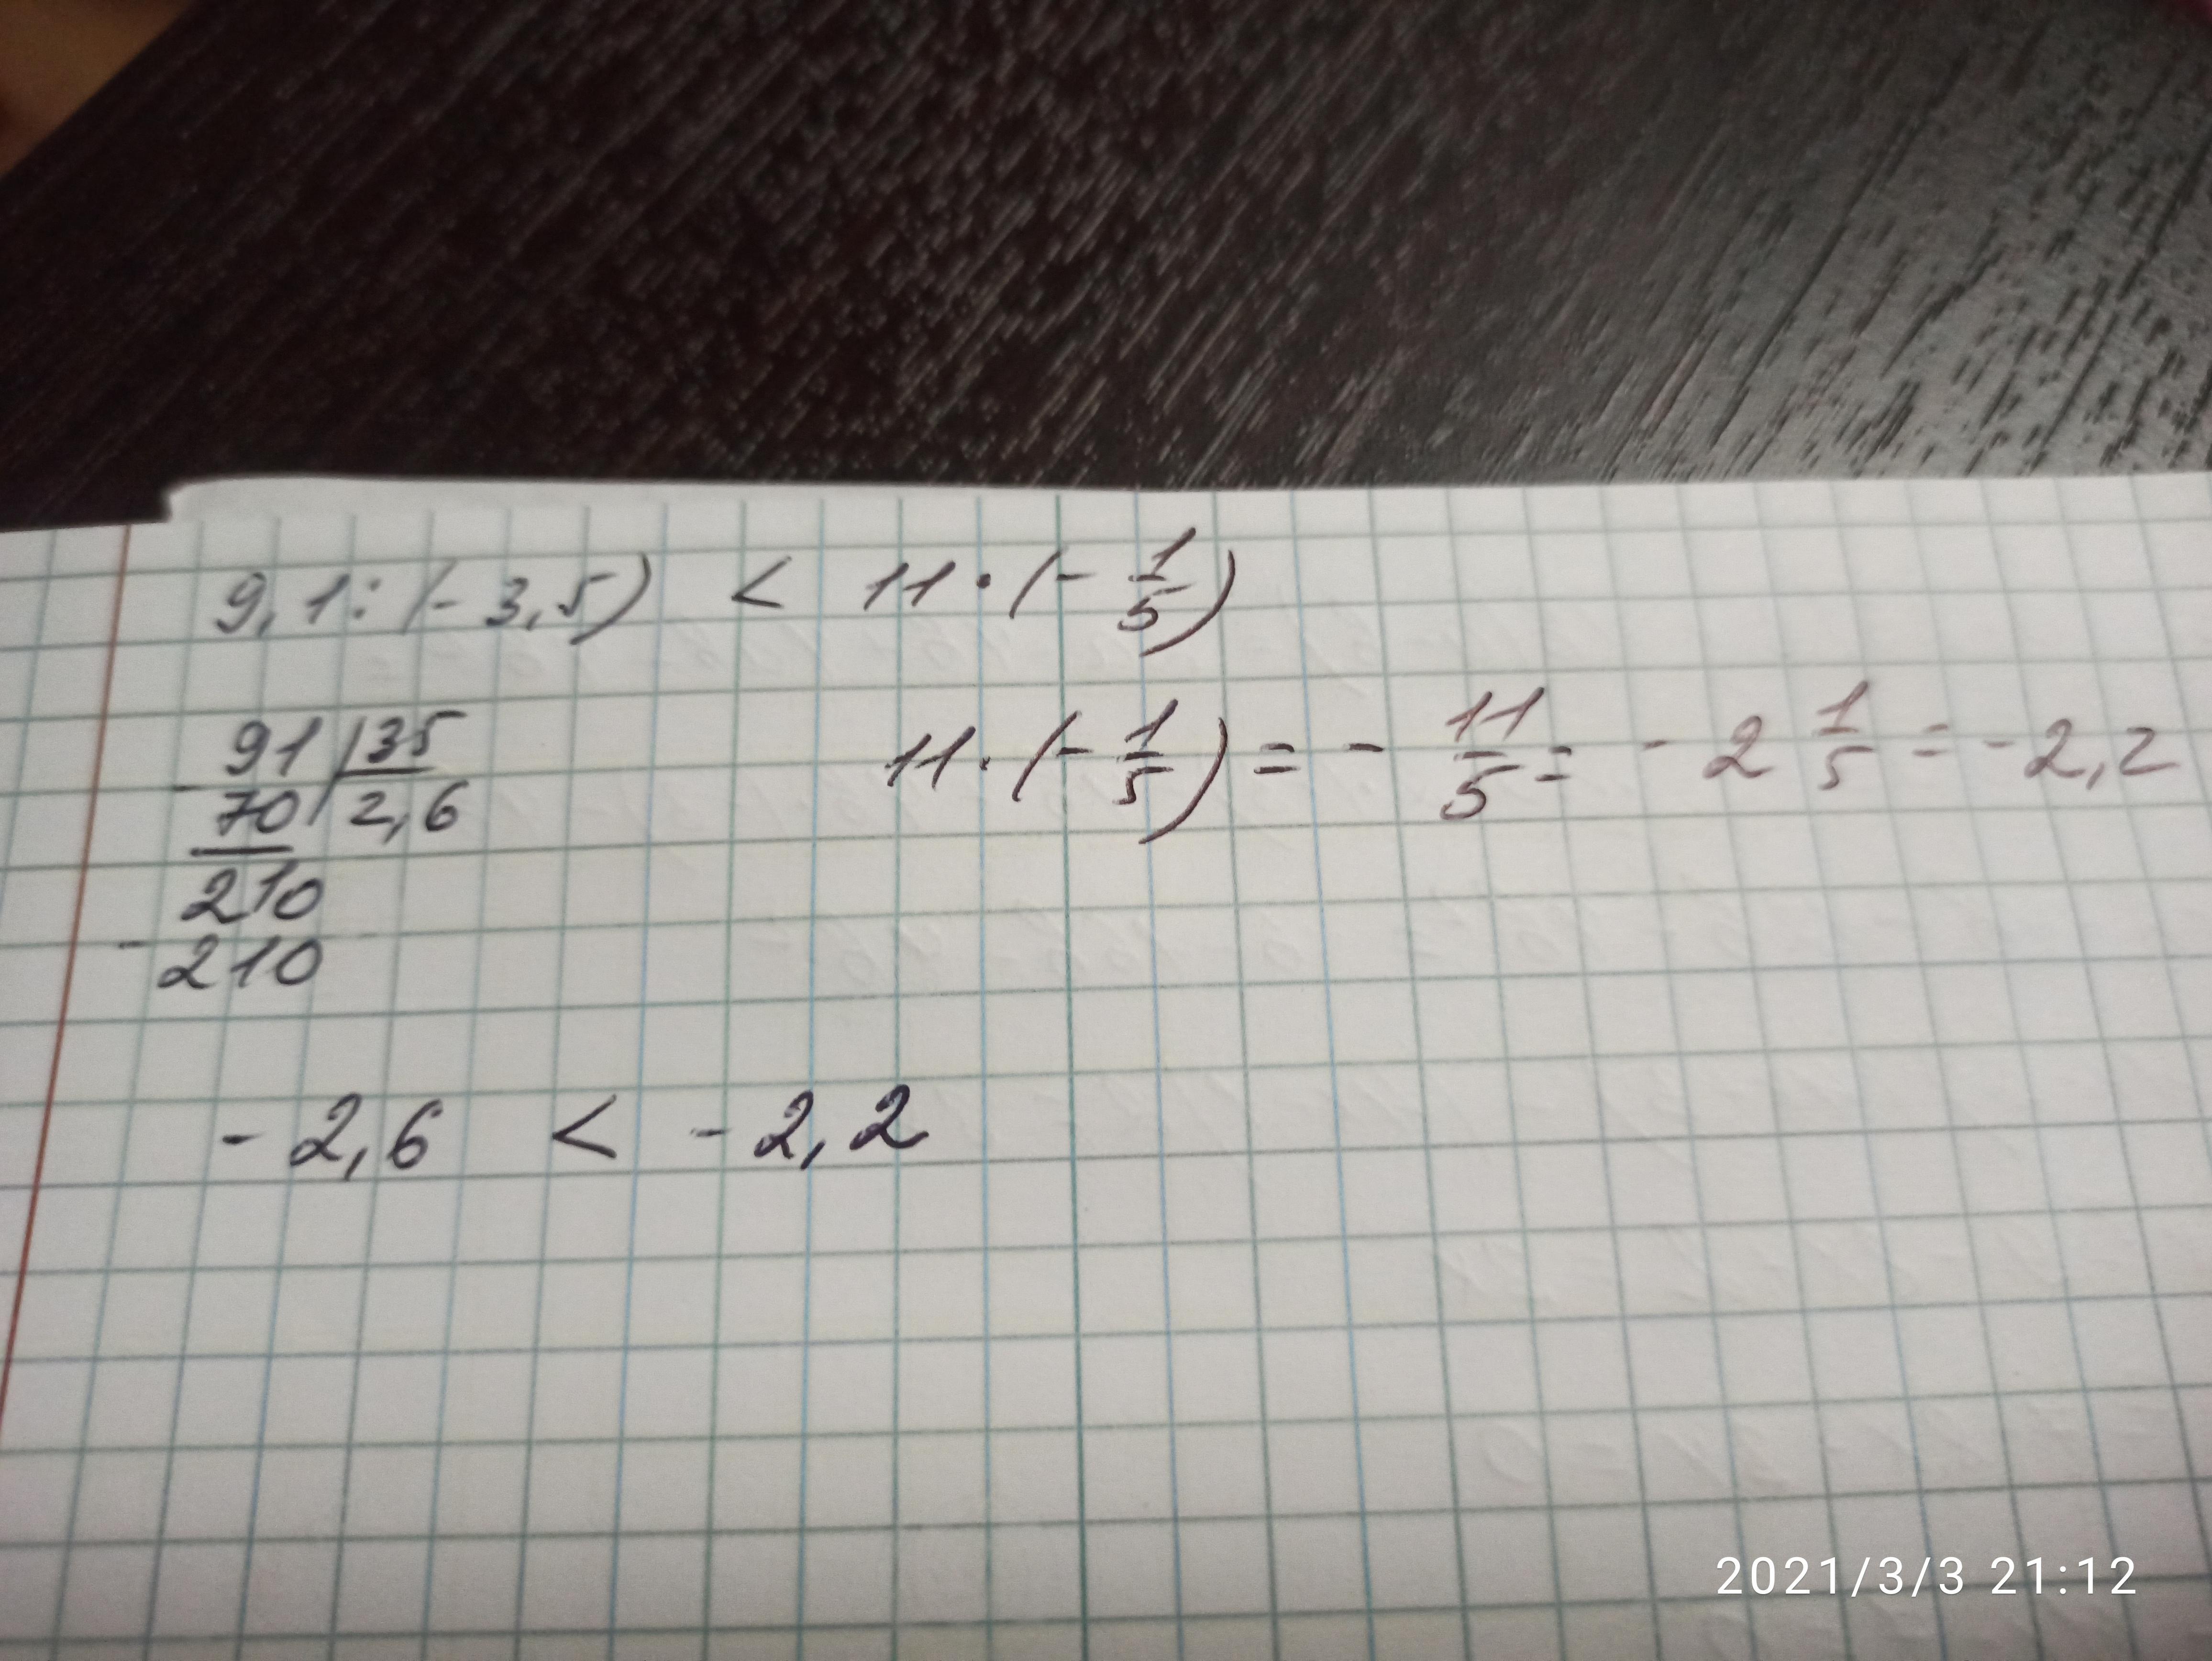 9,1 : (- 3,5) < 11 · (- 1/5)
91 | 35
- 70 | 2,6
210
- 210
11 · (- 1/5) = - 11/5 = - 2 1/5 = - 2,2
- 2,6 < - 2,2
2021/3/3 21:12